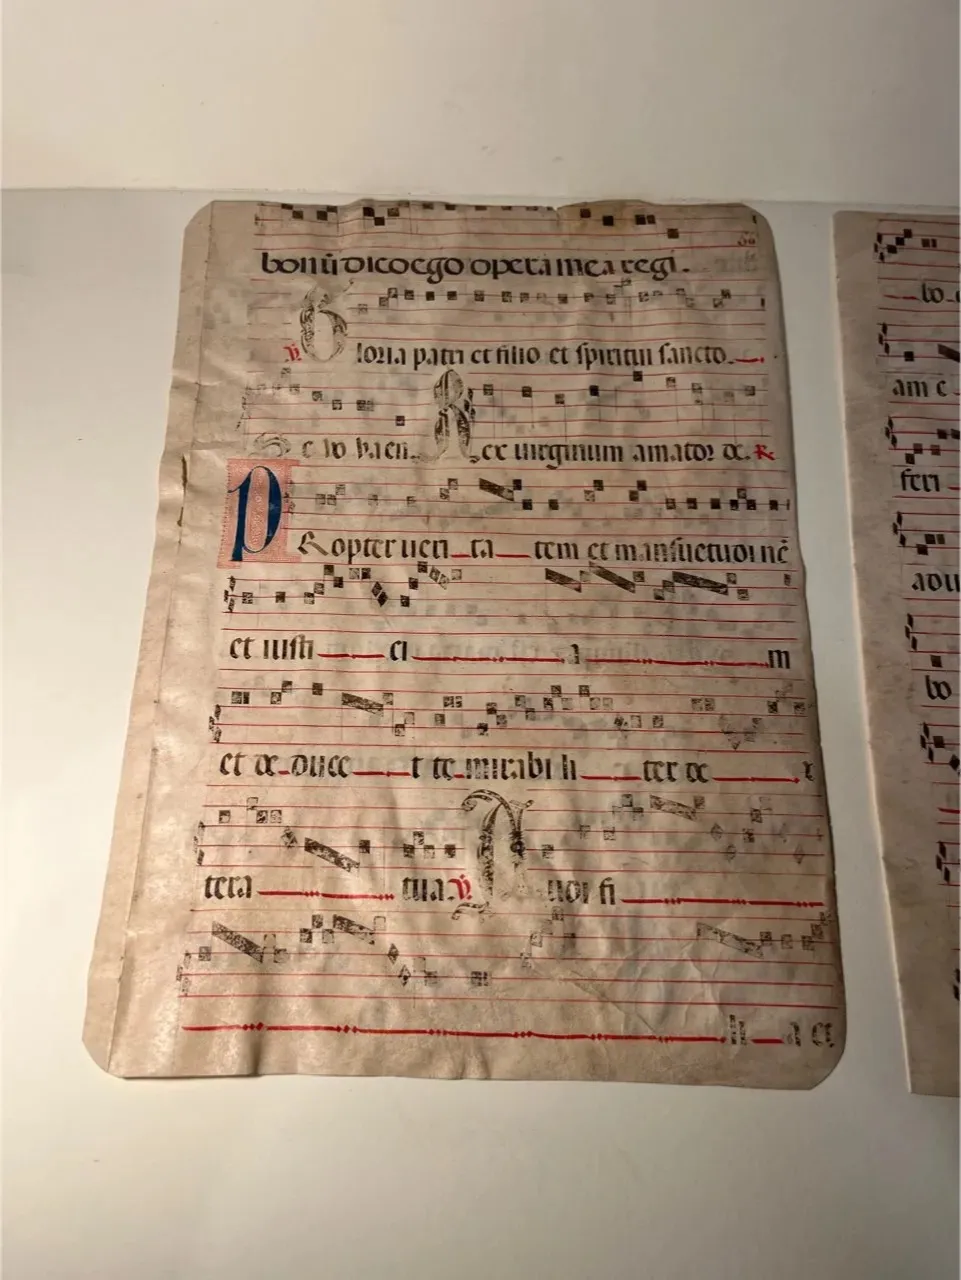 bonū dico ego opera mea regi.
℣. Gloria patri et filio et spiritui sancto
Rex virginum amator
Propter veri ta tem et mansuetudinē
et iusti ci a m
et de duce t te mirabi li ter de x
tera tua ℣. Audi fi
li a et
bo
am e
feri
bo